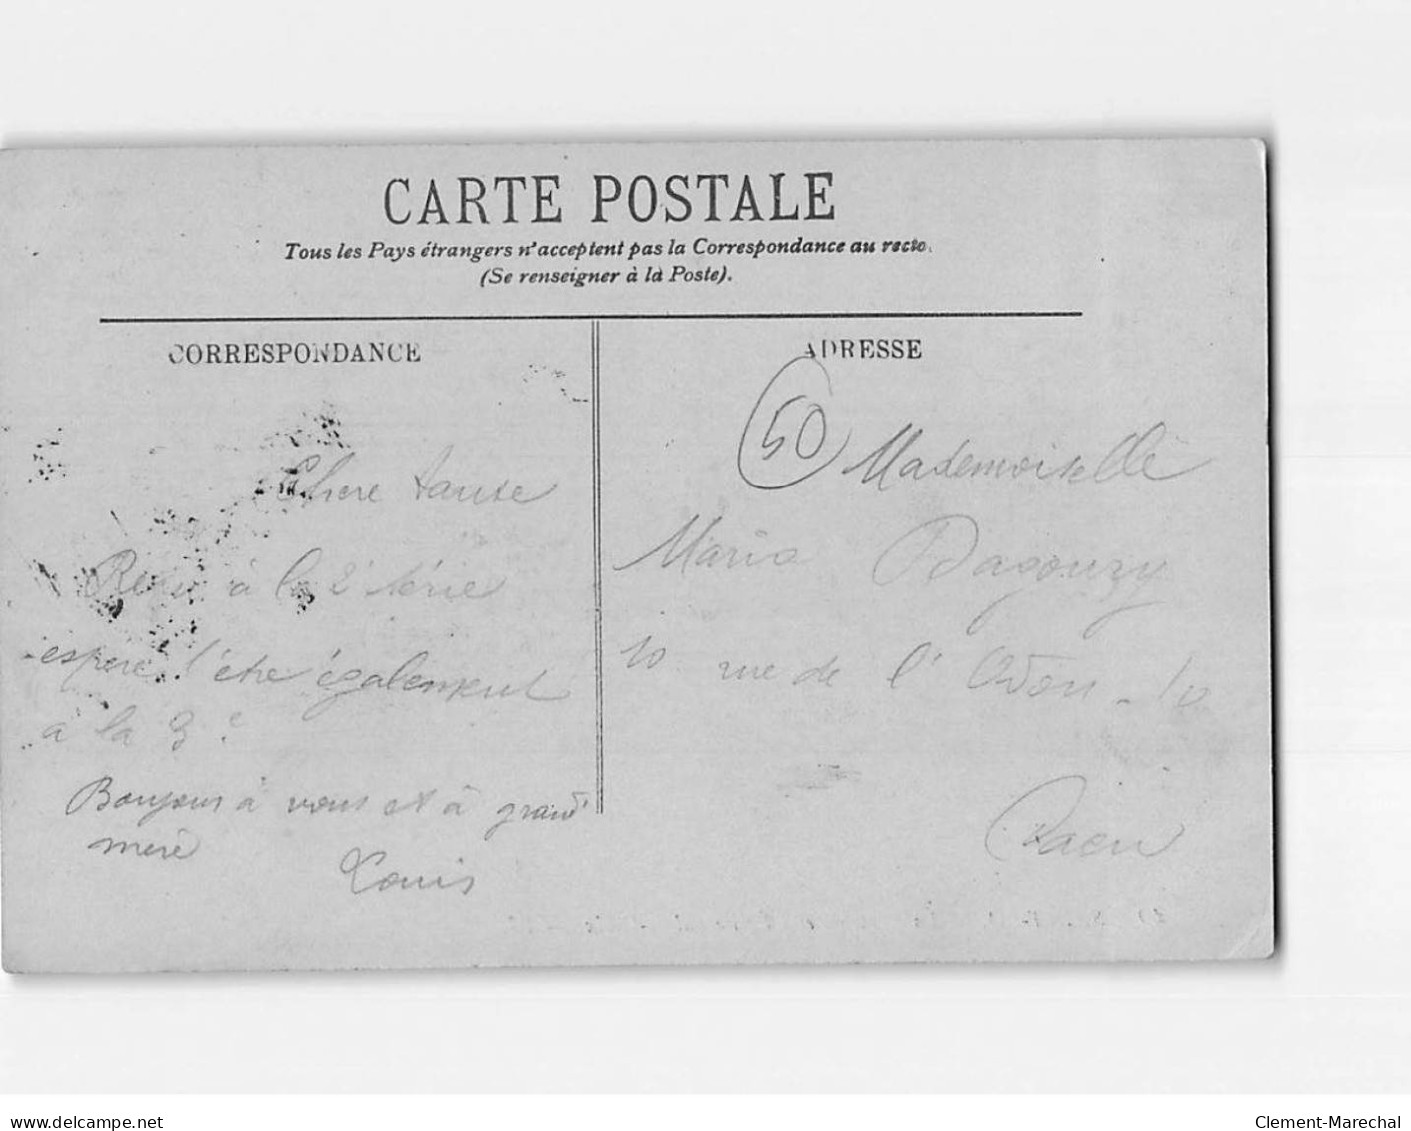 CARTE POSTALE
Tous les Pays étrangers n'acceptent pas la Correspondance au recto.
(Se renseigner à la Poste).
CORRESPONDANCE
Chère tante
Reçu à la 2e série
espère l'être également
à la 3e
Bonjour à vous et à grand
mère
Louis
ADRESSE
50
Mademoiselle
Maria
10 rue de l'Odon 10
Caen
delcampe.net
Clement-Marechal